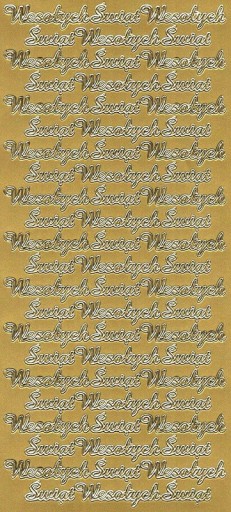 Wesołych Świąt Wesołych
Świąt Wesołych Świąt
Wesołych Świąt Wesołych
Świąt Wesołych Świąt
Wesołych Świąt Wesołych
Świąt Wesołych Świąt
Wesołych Świąt Wesołych
Świąt Wesołych Świąt
Wesołych Świąt Wesołych
Świąt Wesołych Świąt
Wesołych Świąt Wesołych
Świąt Wesołych Świąt
Wesołych Świąt Wesołych
Świąt Wesołych Świąt
Wesołych Świąt Wesołych
Świąt Wesołych Świąt
Wesołych Świąt Wesołych
Świąt Wesołych Świąt
Wesołych Świąt Wesołych
Świąt Wesołych Świąt
Wesołych Świąt Wesołych
Świąt Wesołych Świąt